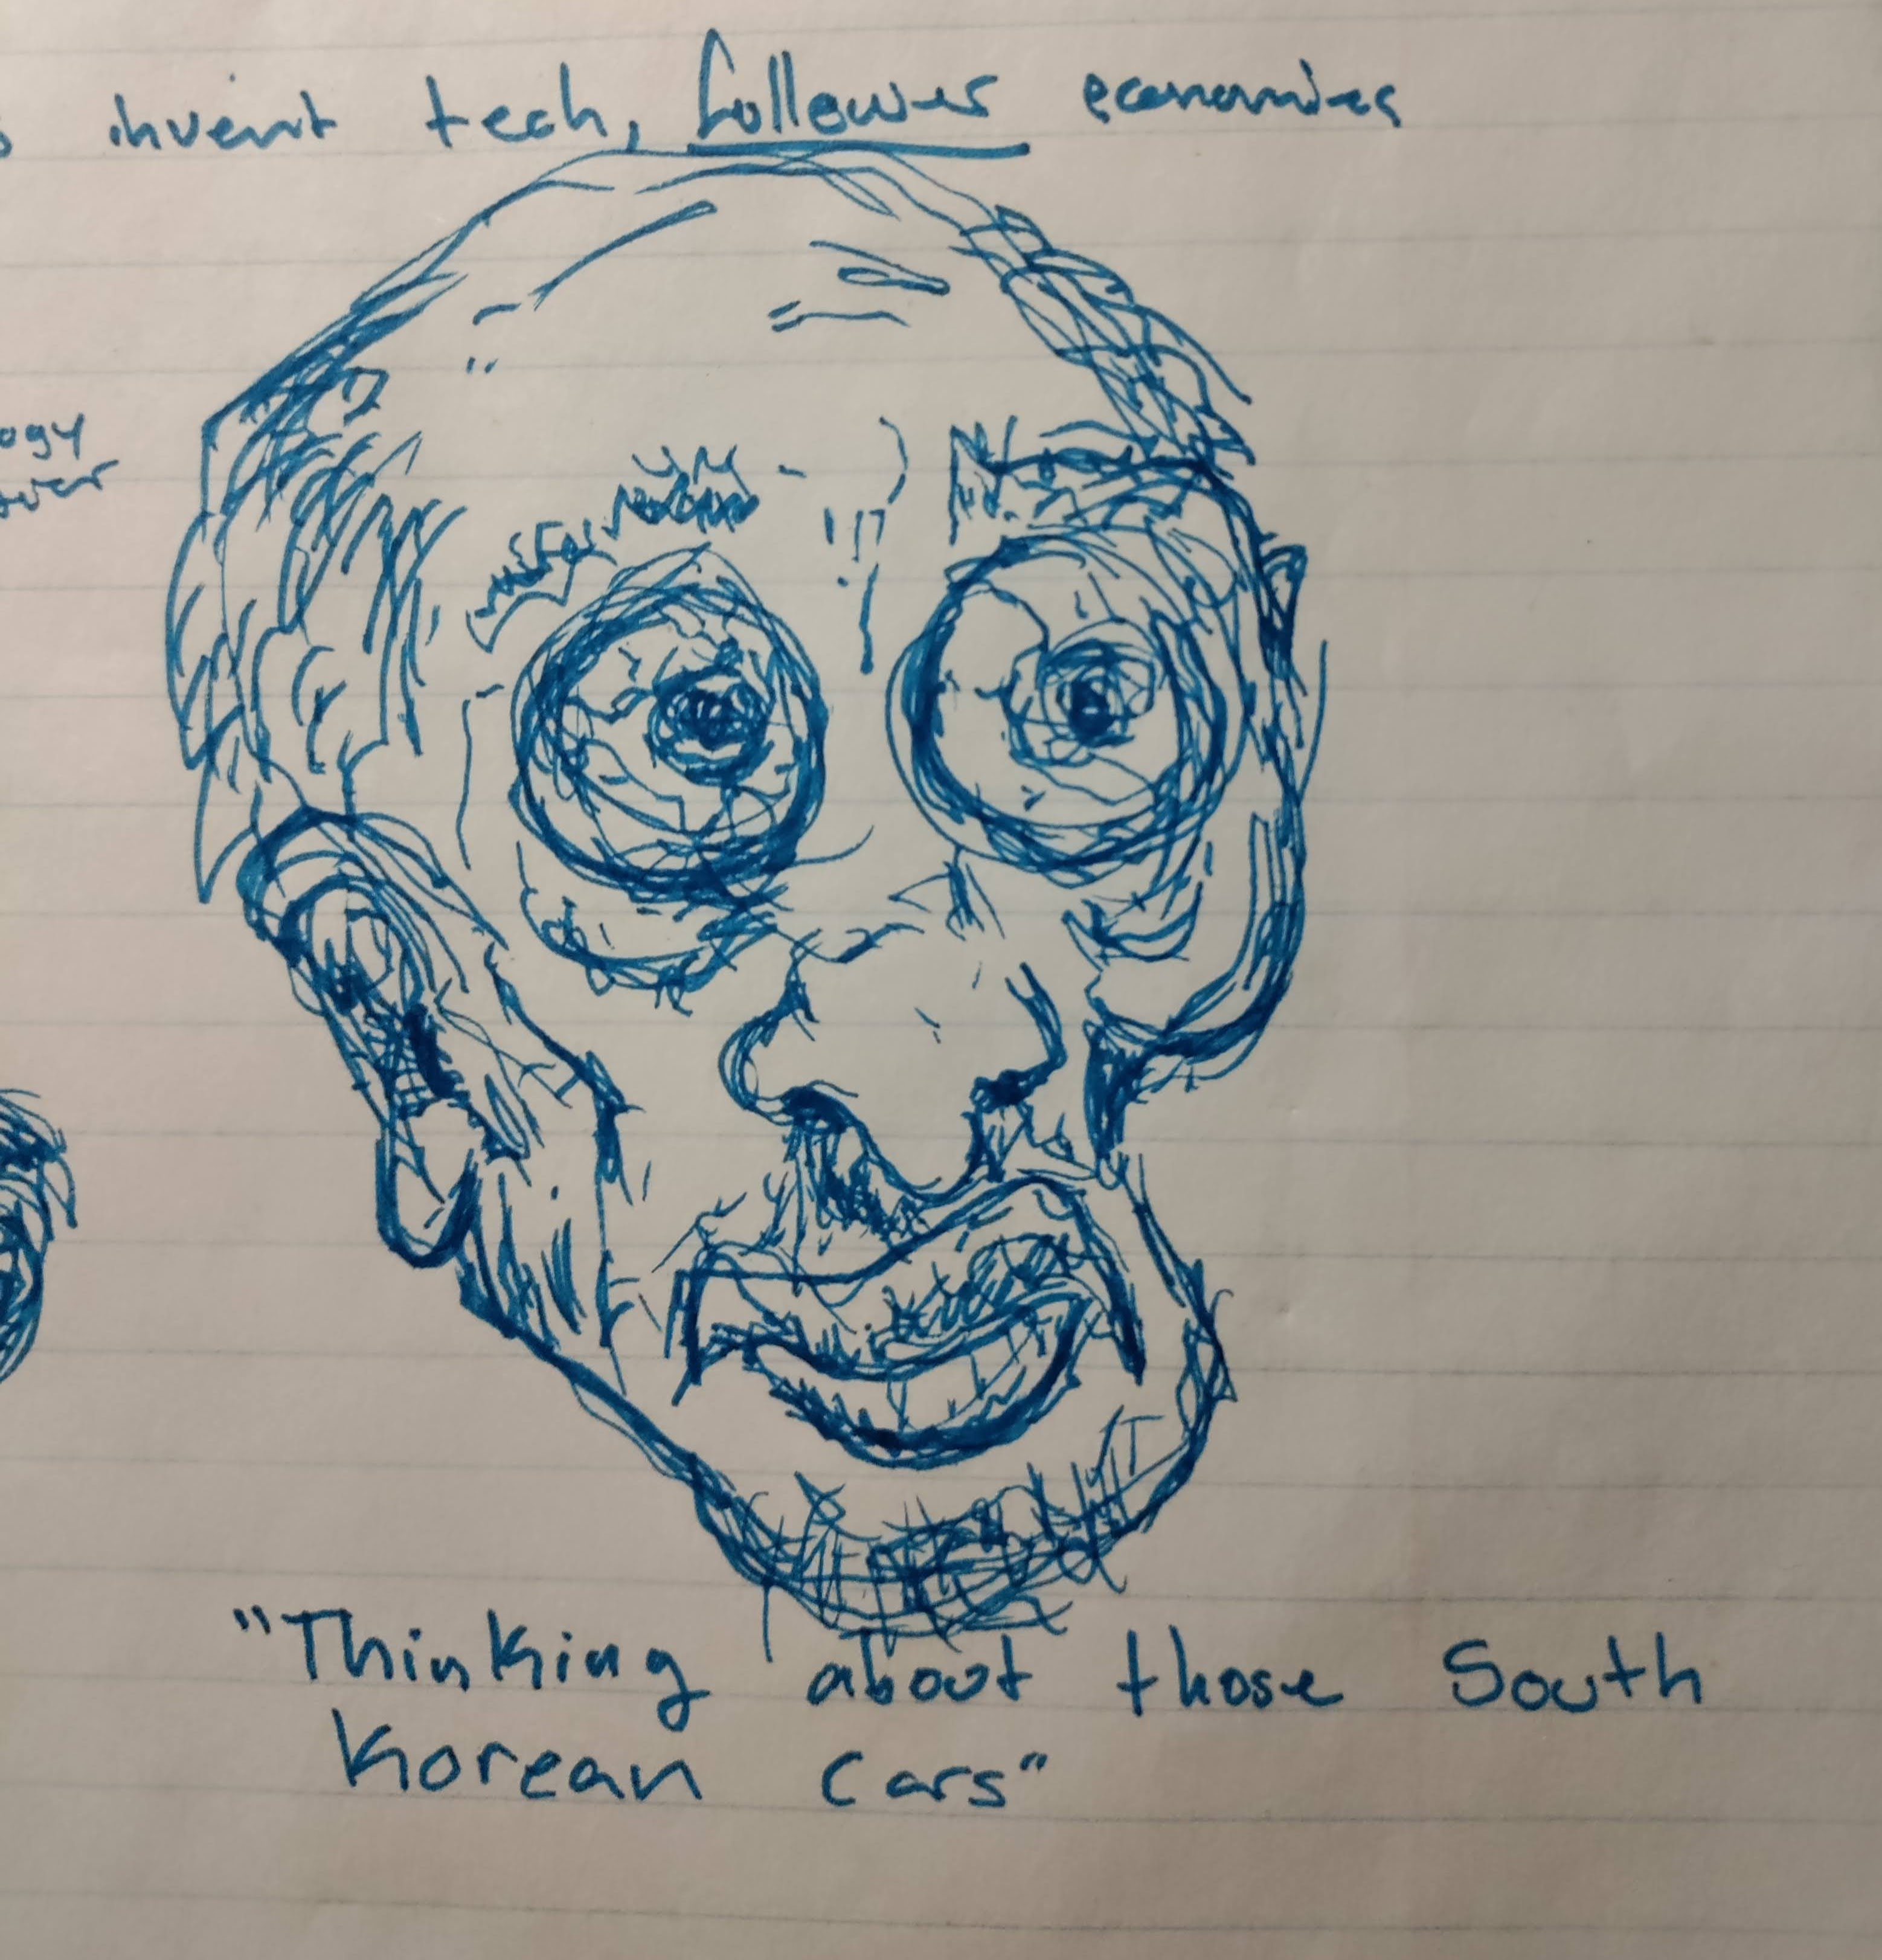 invent tech, follower economies
ogy
over
"Thinking about those South
Korean cars"